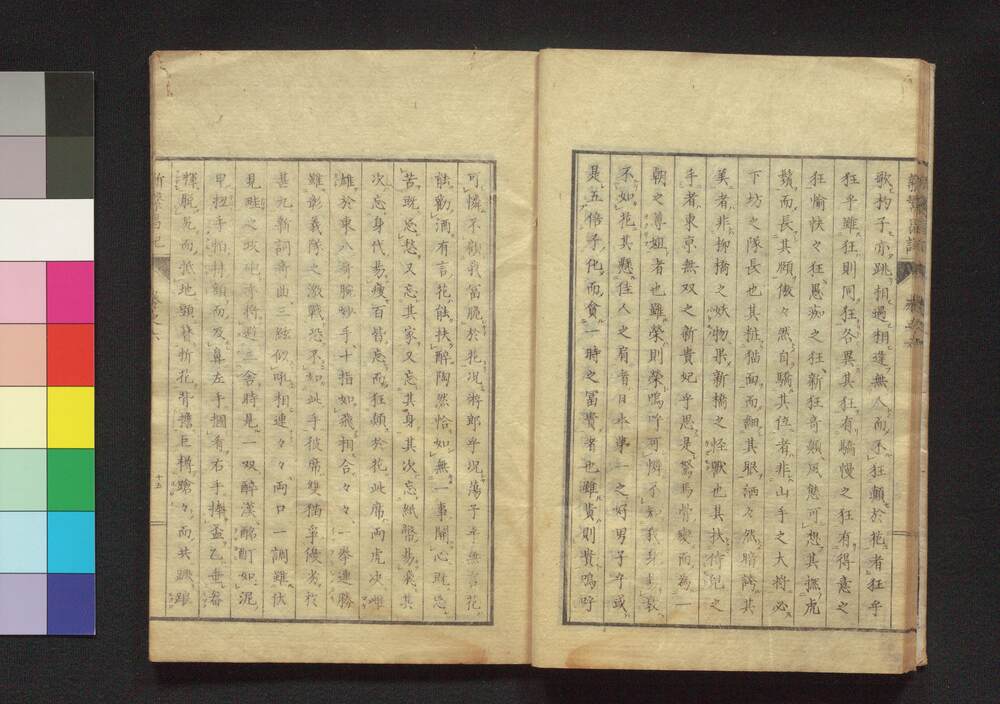 歌杓子亦跳相過相逢無人而不狂顛於花者狂乎
狂乎雖狂則同狂各異其狂有驕慢之狂有得意之
狂愉快々狂愚痴之狂新狂奇顛風態可想其撫虎
鬚而長其顔傲々然自驕其位者非山手之大將必
下坊之隊長也其粧猫面而細其眼洒々然暗誇其
美者非柳橋之妖物果新橋之怪獸也其扶侍兒之
手者東京無双之新貴妃乎思是駑馬骨變而為一
朝之尊姐者也雖榮則榮嗚呼可憐不知我身
不如花其懸佳人之肩者日本第一之好男子乎或
是五倍子化而貪一時之冨貴者也雖貴則貴嗚呼
可憐不顧我冨脆於花况將郎乎况蕩子乎無言花
能勸酒有言花能扶醉陶然恰如無一事關心既忘
苦既忘愁又忘其家又忘其身其次忘紙幣易裘其
次忘身代易痩百皆忘而狂顛於花此席兩虎决雌
雄於東八海腕妙手十指如飛相合々々一拳連勝
雖彰義隊之激戰恐不如此手彼席雙猫爭優劣於
甚九新詞奇曲三絃似吼相連々々両口一調雖伏
見畦之攻砲亦將避三舍時是一双醉漢酩酊如泥
甲扭手拍持額而及鼻左手捆肴右手捧盃乙垂
裸脱兎而抵地頭簪折花背擔巨樽蹌々而共踉